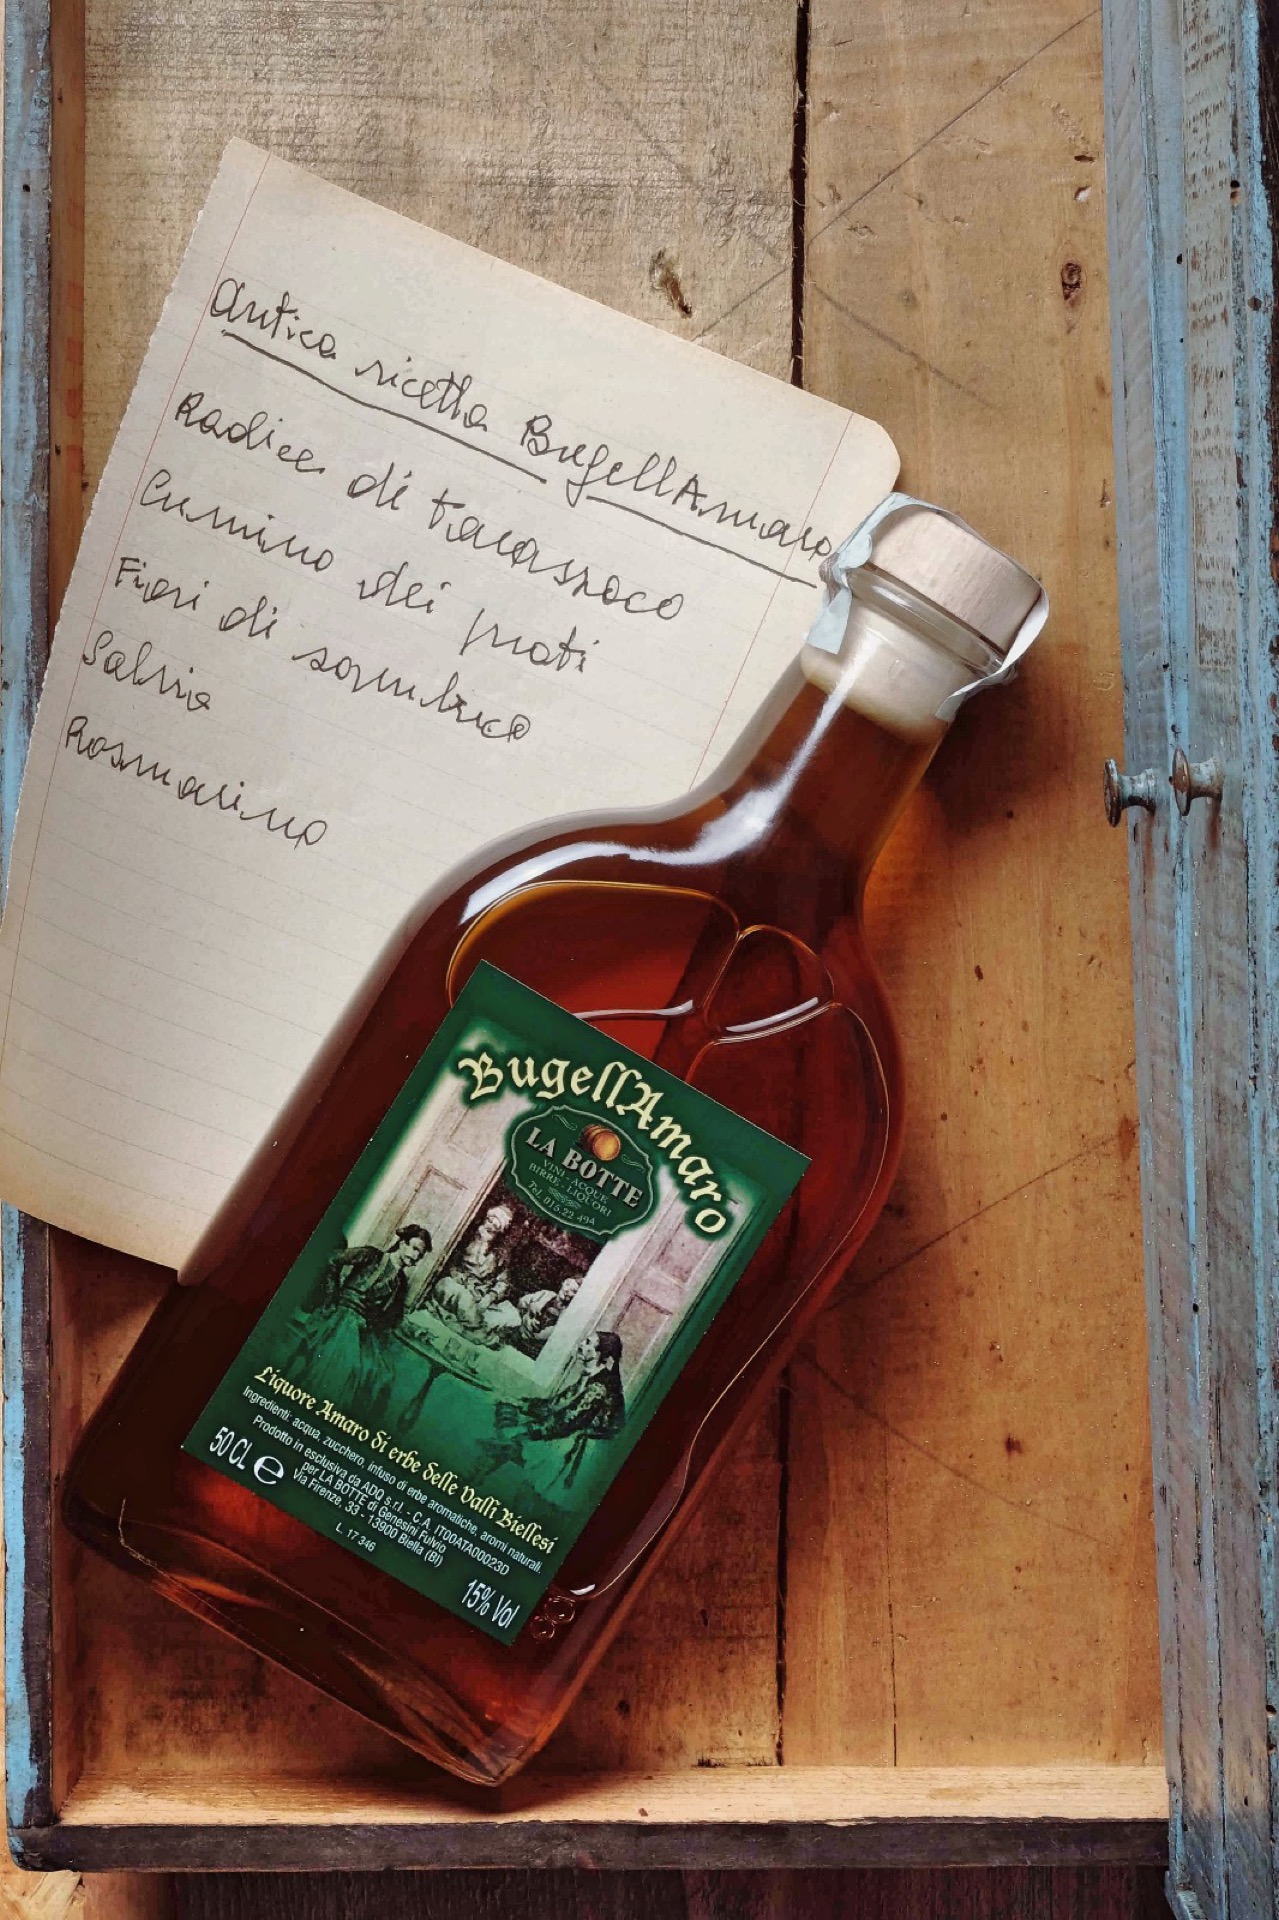 Antica ricetta BugellAmaro
Radice di tarassaco
Cumino dei prati
Fiori di sambuco
Salvia
Rosmarino
BugellAmaro
LA BOTTE
VINI - ACQUE
BIRRE - LIQUORI
Tel. 015.22 494
Liquore Amaro di erbe delle Valli Biellesi
Ingredienti: acqua, zucchero, infuso di erbe aromatiche, aromi naturali.
Prodotto in esclusiva da ADQ s.r.l. - C.A. IT00ATA00023D
per LA BOTTE di Genesini Fulvio
Via Firenze, 33 - 13900 Biella (BI)
50 CL e
L. 17 346
15% Vol